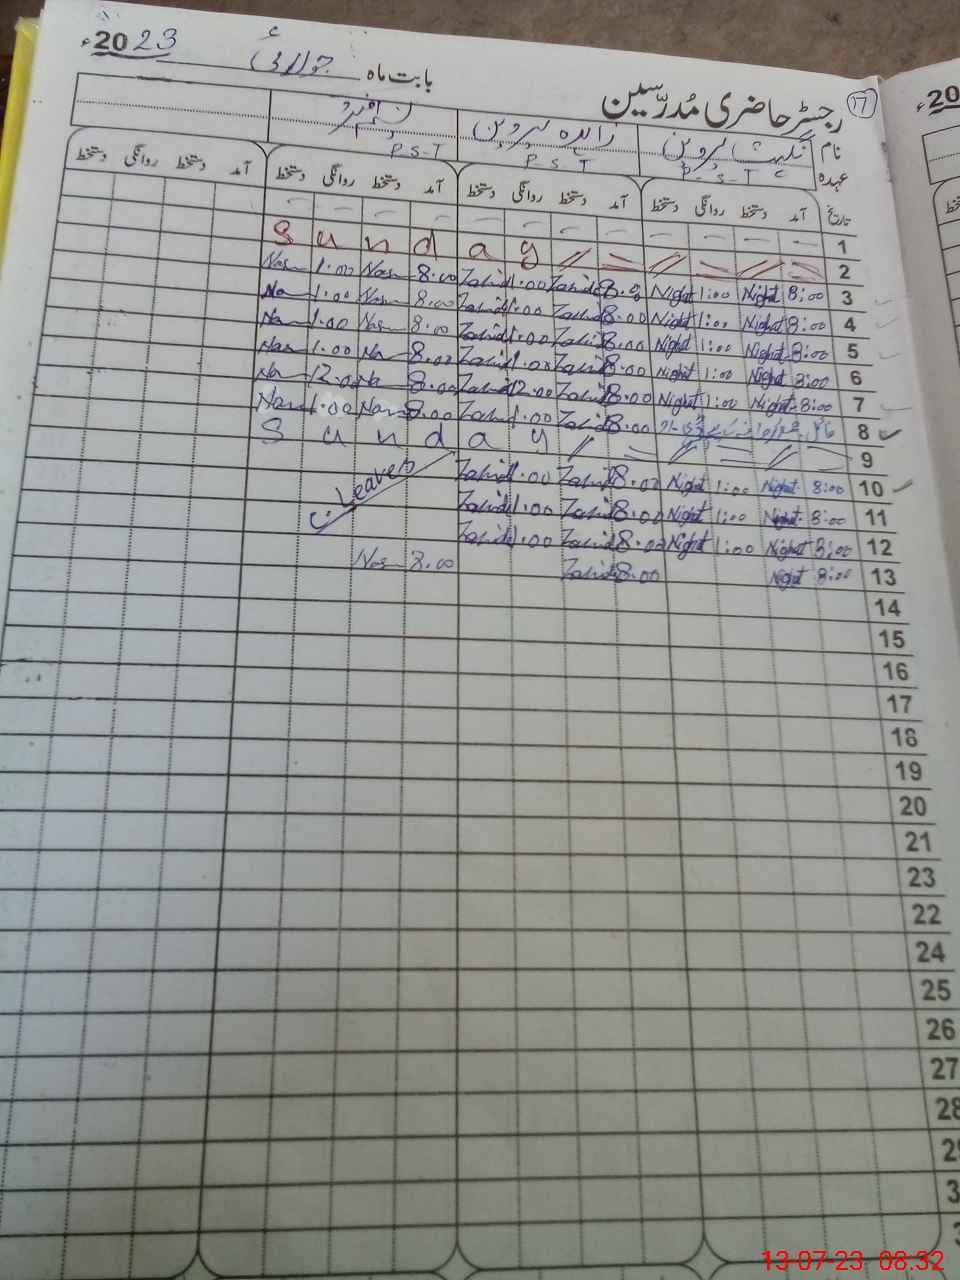 رجسٹر حاضری مُدرّسین بابت ماہ جولائی 2023ء
۱۷
نام نگہت پروین زاہدہ پروین
عہدہ P-S-T P-S-T P-S-T
تاریخ آمد دستخط روانگی دستخط آمد دستخط روانگی دستخط آمد دستخط روانگی دستخط آمد دستخط روانگی دستخط
1 — — — — — — — — — — — —
2 S u n d a y // = // = // =
3 8:00 Night 1:00 Night 8.00 Zahid 1.00 Zahid 8.00 Nas 1.00 Nas
4 8:00 Night 1:00 Night 8.00 Zahid 1.00 Zahid 8.00 Nas 1.00 Na
5 8:00 Night 1:00 Night 8.00 Zahid 1.00 Zahid 8.00 Nas 1.00 Na
6 8:00 Night 1:00 Night 8.00 Zahid 1.00 Zahid 8.00 Na 1.00 Nas
7 8:00 Night 1:00 Night 8.00 Zahid 12.00 Zahid 8.00 Na 12.00 Na
8 8.00 Zahid 1.00 Zahid 8.00 Nas 1.00 Nas
9 S u n d a y // = // = //
10 8:00 Night 1:00 Night 8.00 Zahid 1.00 Zahid Leave
11 8:00 Night 1:00 Night 8.00 Zahid 1.00 Zahid
12 8:00 Night 1:00 Night 8.00 Zahid 1.00 Zahid
13 8:00 Night 8.00 Zahid 8.00 Nas
14
15
16
17
18
19
20
21
23
22
24
25
26
27
28
20
13-07-23 08:32